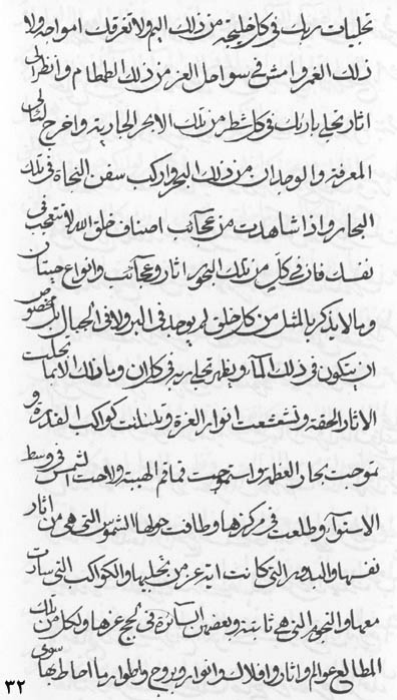 تجليات ربك في كل خليجة من ذلك اليم ولا تغرقك امواجه ولا
ذلك الغمر وامش في سواحل العز من ذلك الطمطام وانظر الى
اثار تجلي بارئك في كل شطر من تلك الابحر الجارية واخرج
المعرفة والوجدان من ذلك البحر واركب سفن النجاة في تلك
البحار واذا شاهدت من عجائب اصناف خلق الله لا تتعجب في
نفسك فان في كل من تلك البحور اثار وعجائب وانواع حيتان
وما لا يذكر بالمثل من كل خلق لم يوجد في البر ولا في الجبال بل مخصوص
ان يتكون في ذلك المآء ويظهر تجلي ربه في كل ان وما تلك الا تجليات
الاثار الحقة وتشعشعت انوار العزة وتلئلئت كواكب القدرة و
تموجت بحار العظمة واستجهت قماقم الهيبة ولاحت الشمس في وسط
الاستوآء وطلعت في مركزها وطافت حولها الشموس التي هي من اثار
نفسها والبدور التي كانت ابدعت من تجليها والكواكب التي سارت
معها والنجوم التي هي ثابتة وبعضهن السائرة في لجج عزها ولكل من تلك
المطالع عوالم واثار وافلاك وانوار وبروج واطوار ما احاط بها سوى
٣٢